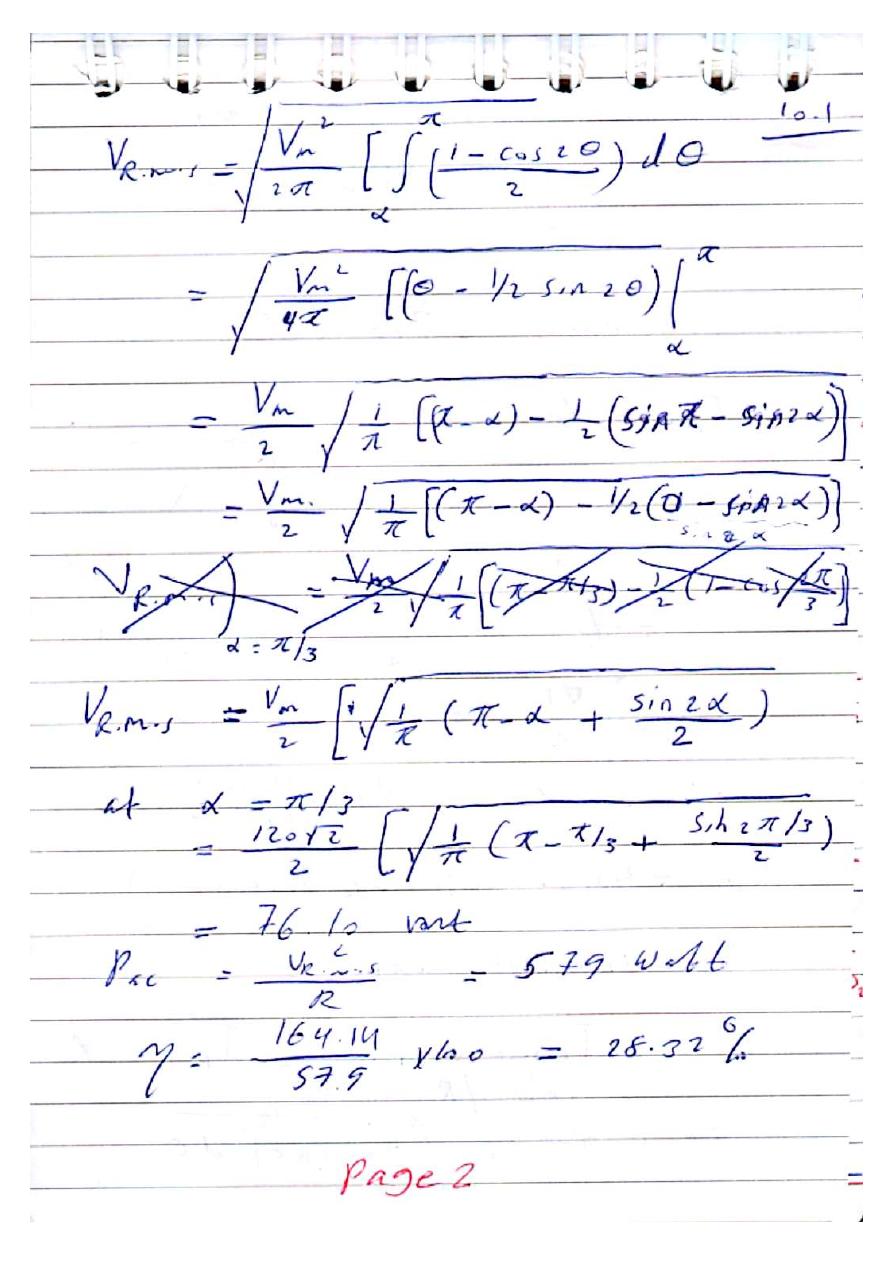 10.1
V_R.m.s = √( V_m² / 2π [ ∫_α^π ( (1 - cos 2θ) / 2 ) dθ
= √( V_m² / 4π [ (θ - 1/2 sin 2θ) |_α^π
= V_m / 2 √( 1/π [ (π - α) - 1/2 ( sin π - sin 2α ) ]
= V_m. / 2 √( 1/π [ (π - α) - 1/2 ( 0 - sin 2α ) ]
sin 2 α
V_R.m.s )_α = π/3 = V_m / 2 √( 1/π [ (π - π/3) - 1/2 ( 1 - cos 2π/3 ) ]
V_R.m.s = V_m / 2 [ √( 1/π ( π - α + sin 2α / 2 )
at α = π/3
= 120√2 / 2 [ √( 1/π ( π - π/3 + sin 2π/3 / 2 )
= 76.10
P_ac = V_R.m.s² / R = 579 watt
η = 164.14 / 57.9 × 100 = 28.32 %
Page 2